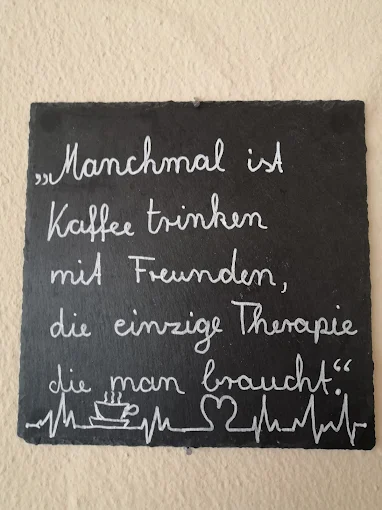 „Manchmal ist
Kaffee trinken
mit Freunden,
die einzige Therapie
die man braucht.“